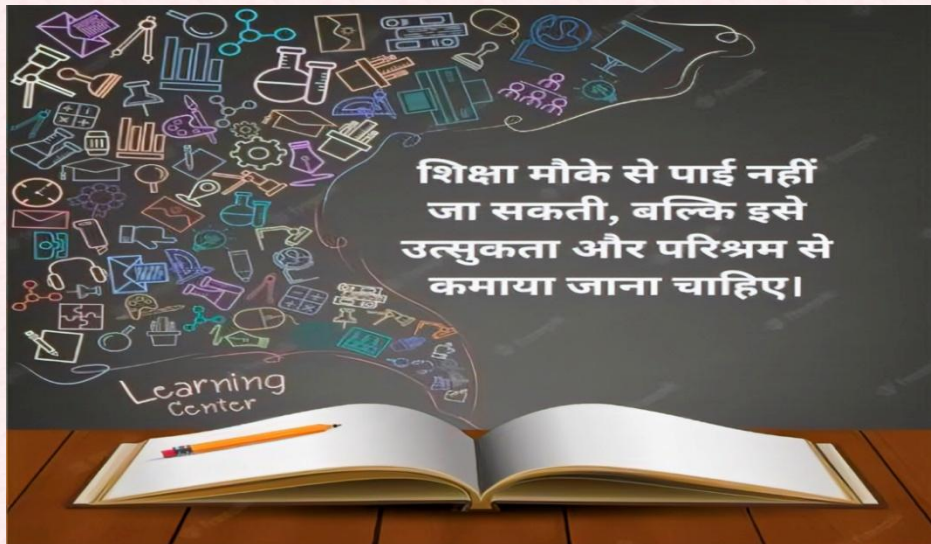 शिक्षा मौके से पाई नहीं
जा सकती, बल्कि इसे
उत्सुकता और परिश्रम से
कमाया जाना चाहिए।
Learning
Center